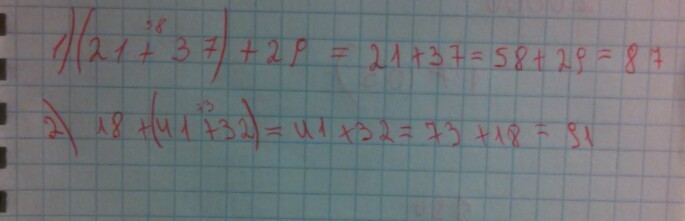 58
1) (21 + 37) + 29 = 21+37 = 58 + 29 = 87
73
2) 18 + (41 + 32) = 41 + 32 = 73 + 18 = 91